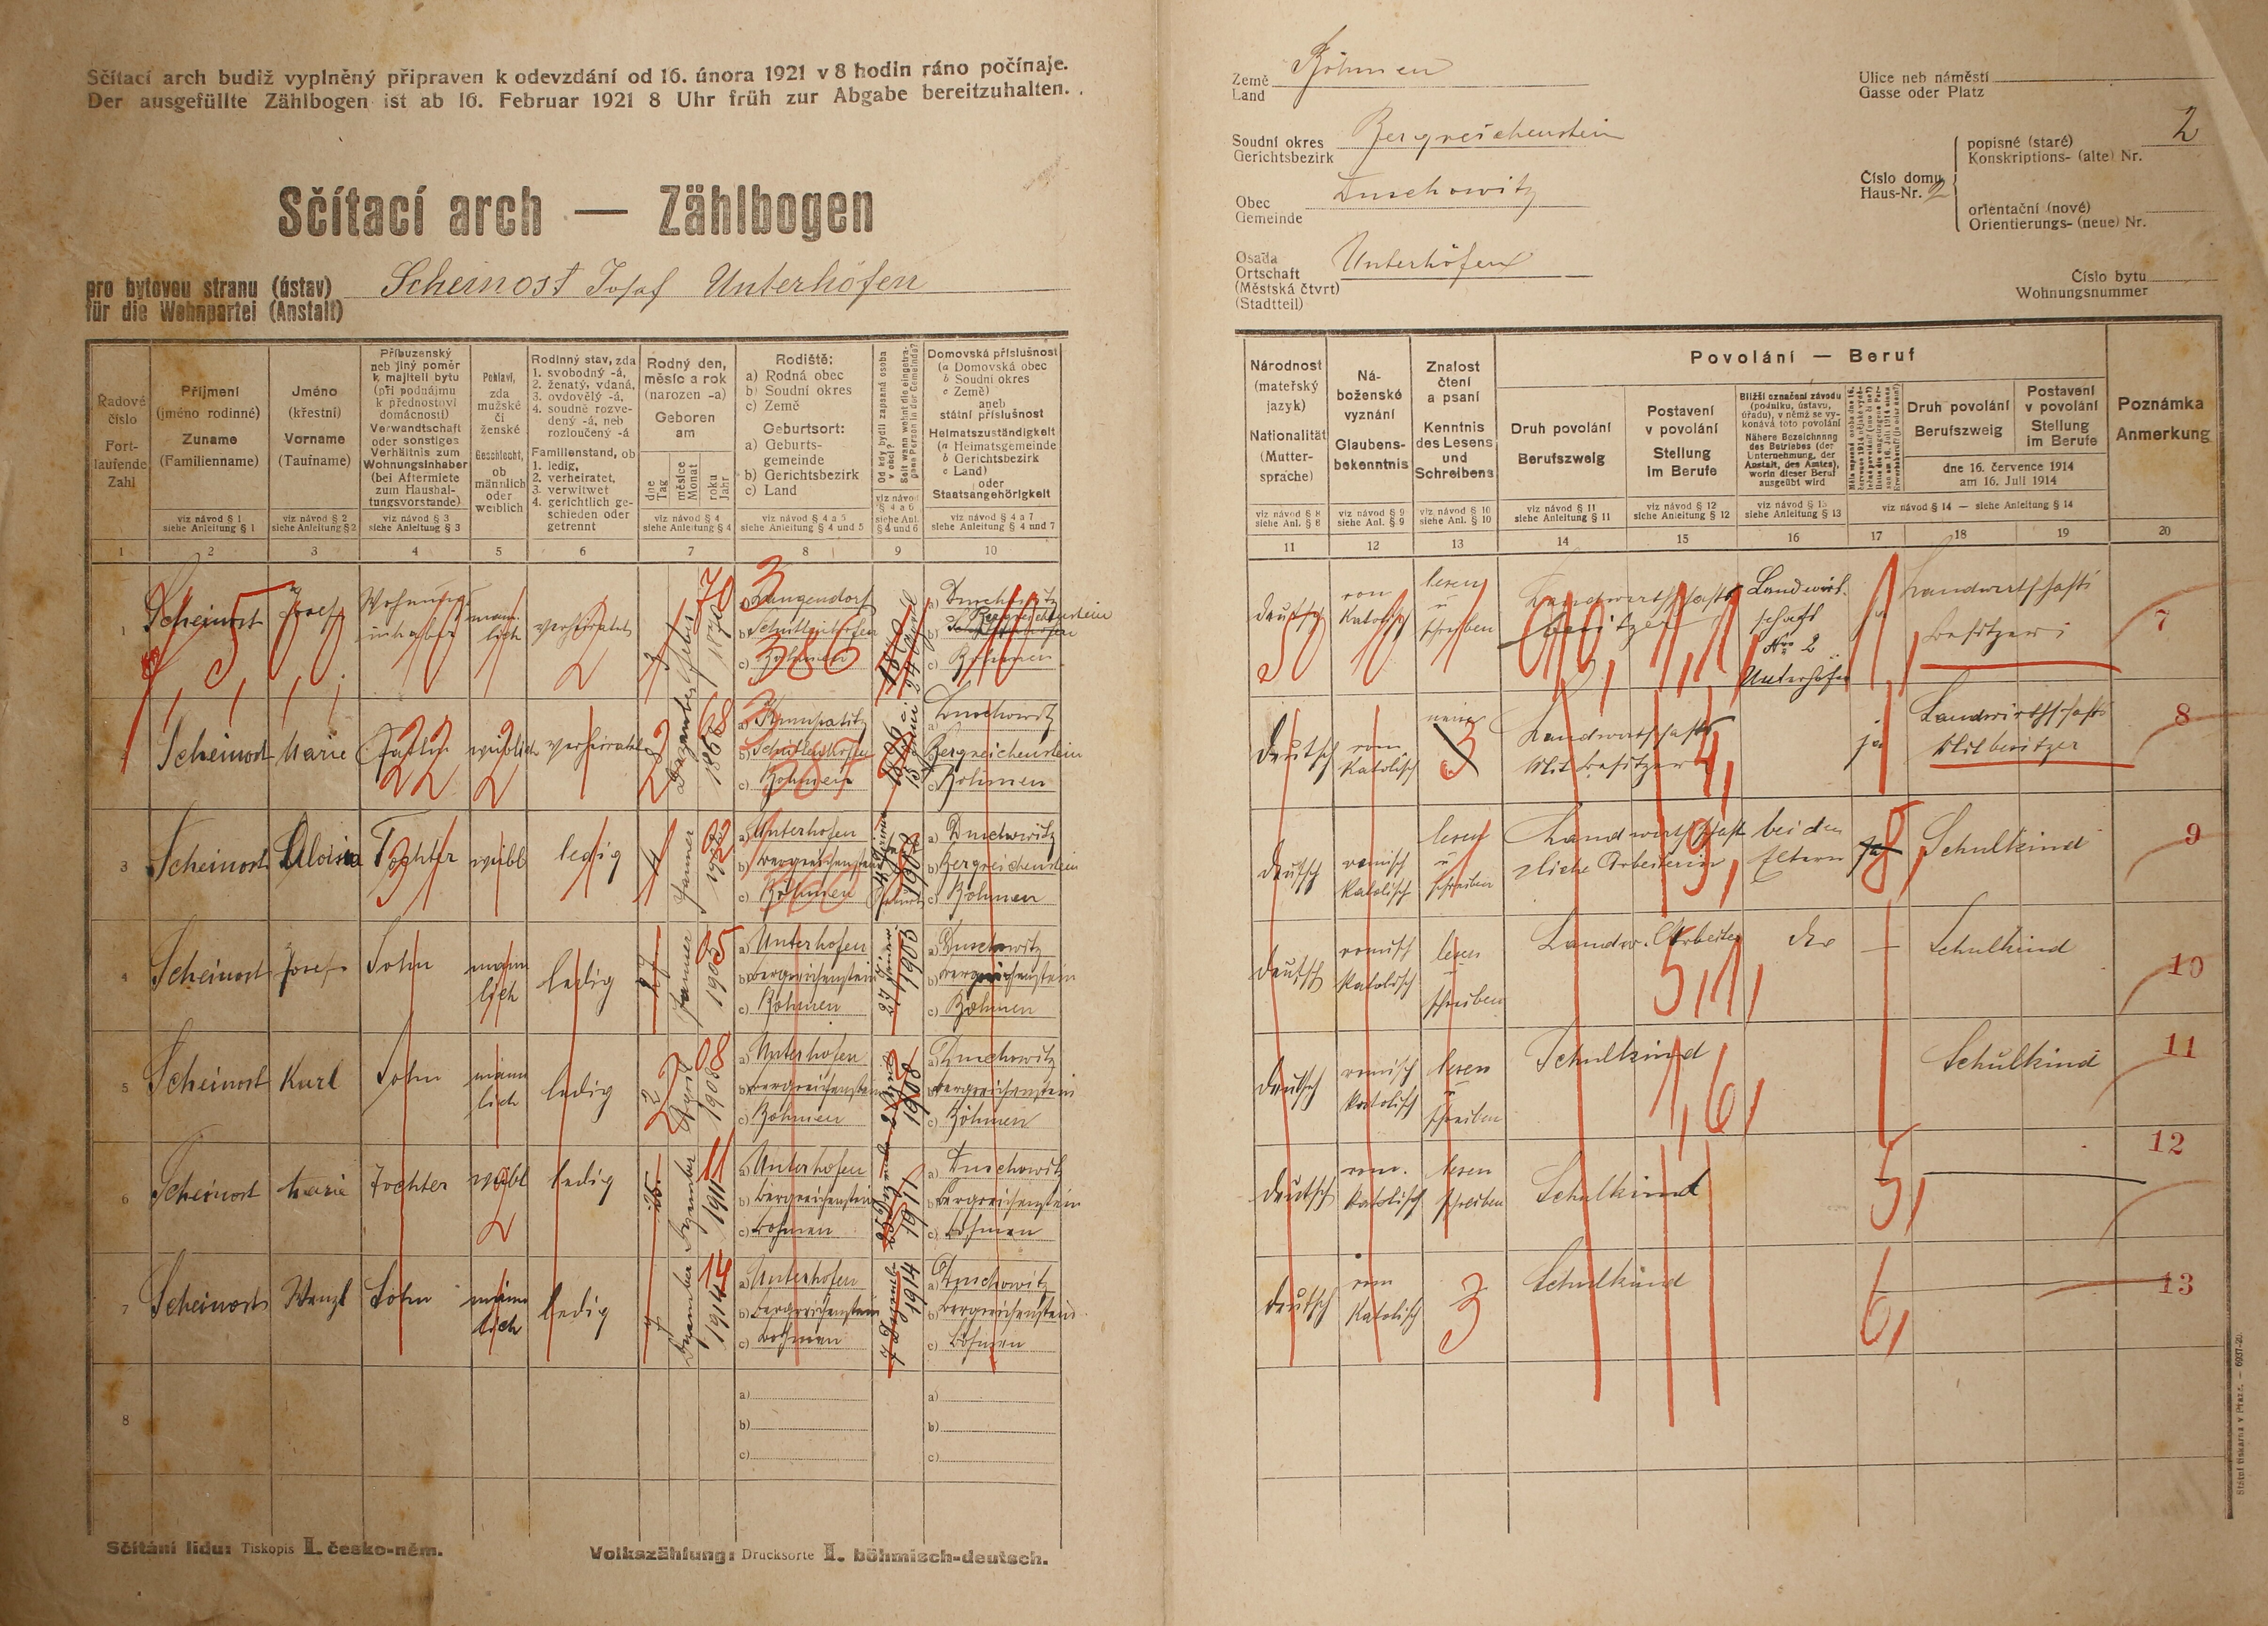 Sčítací arch budiž vyplněný připraven k odevzdání od 16. února 1921 v 8 hodin ráno počínaje.
Der ausgefüllte Zählbogen ist ab 16. Februar 1921 8 Uhr früh zur Abgabe bereitzuhalten.
Sčítací arch — Zählbogen
pro bytovou stranu (ústav)
für die Wohnpartei (Anstalt)
Scheinost Josef Unterhöfen
Země
Land
Böhmen
Soudní okres
Gerichtsbezirk
Bergreichenstein
Obec
Gemeinde
Duschowitz
Osada
Ortschaft
(Městská čtvrt)
(Stadtteil)
Unterhöfen
Ulice neb náměstí
Gasse oder Platz
Číslo domu
Haus-Nr. 2
popisné (staré)
Konskriptions- (alte) Nr.
2
orientační (nové)
Orientierungs- (neue) Nr.
Číslo bytu
Wohnungsnummer
Řadové
číslo
Fort-
laufende
Zahl
Příjmení
(jméno rodinné)
Zuname
(Familienname)
viz návod § 1
siehe Anleitung § 1
Jméno
(křestní)
Vorname
(Taufname)
viz návod § 2
siehe Anleitung § 2
Příbuzenský
neb jiný poměr
k majiteli bytu
(při podnájmu
k přednostovi
domácnosti)
Verwandtschaft
oder sonstiges
Verhältnis zum
Wohnungsinhaber
(bei Aftermiete
zum Haushal-
tungsvorstande)
viz návod § 3
siehe Anleitung § 3
Pohlaví,
zda
mužské
či
ženské
Geschlecht,
ob
männlich
oder
weiblich
Rodinný stav, zda
1. svobodný -á,
2. ženatý, vdaná,
3. ovdovělý -á,
4. soudně rozve-
dený -á, neb
rozloučený -á
Familienstand, ob
1. ledig,
2. verheiratet,
3. verwitwet
4. gerichtlich ge-
schieden oder
getrennt
Rodný den,
měsíc a rok
(narozen -a)
Geboren
am
dne
Tag
měsíce
Monat
roku
Jahr
viz návod § 4
siehe Anleitung § 4
Rodiště:
a) Rodná obec
b) Soudní okres
c) Země
Geburtsort:
a) Geburts-
gemeinde
b) Gerichtsbezirk
c) Land
viz návod § 4 a 5
siehe Anleitung § 4 und 5
Od kdy bydlí zapsaná osoba
v obci?
Seit wann wohnt die eingetra-
gene Person in der Gemeinde?
viz návod
§ 4 a 6
siehe Anl.
§ 4 und 6
Domovská příslušnost
(a Domovská obec
b Soudní okres
c Země)
aneb
státní příslušnost
Heimatszuständigkeit
(a Heimatsgemeinde
b Gerichtsbezirk
c Land)
oder
Staatsangehörigkeit
viz návod § 4 a 7
siehe Anleitung § 4 und 7
Národnost
(mateřský
jazyk)
Nationalität
(Mutter-
sprache)
viz návod § 8
siehe Anl. § 8
Ná-
boženské
vyznání
Glaubens-
bekenntnis
viz návod § 9
siehe Anl. § 9
Znalost
čtení
a psaní
Kenntnis
des Lesens
und
Schreibens
viz návod § 10
siehe Anl. § 10
Povolání — Beruf
Druh povolání
Berufszweig
viz návod § 11
siehe Anleitung § 11
Postavení
v povolání
Stellung
im Berufe
viz návod § 12
siehe Anleitung § 12
Bližší označení závodu
(podniku, ústavu,
úřadu), v němž se vy-
konává toto povolání
Nähere Bezeichnung
des Betriebes (der
Unternehmung, der
Anstalt, des Amtes),
worin dieser Beruf
ausgeübt wird
viz návod § 13
siehe Anleitung § 13
Druh povolání
Berufszweig
Postavení
v povolání
Stellung
im Berufe
dne 16. července 1914
am 16. Juli 1914
viz návod § 14 — siehe Anleitung § 14
Poznámka
Anmerkung
1 2 3 4 5 6 7 8 9 10 11 12 13 14 15 16 17 18 19 20
1 Scheinost Josef Wohnungs
inhaber
männ
lich
verheiratet
1870
a) Langendorf
b) Schüttenhofen
c) Böhmen
386
a) Duschowitz
b) Bergreichenstein
c) Böhmen
deutsch
röm
Katolisch
lesen
u
schreiben
Landwirtschafts
besitzer
Landwirt
schaft
Nro 2
Unterhöfen
ja
Landwirtschafts
besitzer
7
Scheinost Marie Gattin weiblich verheiratet
Dezember 1868
b) Schüttenhofen
c) Böhmen
a) Duschowitz
b) Bergreichenstein
c) Böhmen
deutsch
röm
Katolisch
nein
3
Landwirtschafts
Mit besitzer
ja
Landwirtschafts
Mitbesitzer
8
3 Scheinost Aloisia Tochter weibl ledig
Jänner
a) Unterhöfen
b) Bergreichenstein
c) Böhmen
a) Duschowitz
b) Bergreichenstein
c) Böhmen
deutsch
römisch
Katolisch
lesen
u
schreiben
Landwirtschaft
zliche Arbeiterin
bei den
Eltern
Schulkind
9
4 Scheinost Josef Sohn
männ
lich
ledig
27 Jänner 1905
a) Unterhöfen
b) Bergreichenstein
c) Böhmen
27 Jänner 1905
a) Duschowitz
b) Bergreichenstein
c) Böhmen
deutsch
römisch
Katolisch
lesen
schreiben
Landw. Arbeiter
Schulkind
10
5 Scheinost Karl Sohn
männ
lich
ledig
2 April 1908
a) Unterhöfen
b) Bergreichenstein
c) Böhmen
2 April 1908
a) Duschowitz
b) Bergreichenstein
c) Böhmen
deutsch
römisch
Katolisch
lesen
u
schreiben
Schulkind
1,6,
Schulkind
11
6 Scheinost Marie Tochter weibl ledig
Dezember 1911
a) Unterhöfen
b) Bergreichenstein
c) Böhmen
1911
a) Duschowitz
b) Bergreichenstein
c) Böhmen
deutsch
röm.
Katolisch
lesen
schreiben
Schulkind
5,
12
7 Scheinost Wenzl Sohn
männ
lich
ledig
7 Dezember 1914
a) Unterhöfen
b) Bergreichenstein
c) Böhmen
7 Dezember 1914
a) Duschowitz
b) Bergreichenstein
c) Böhmen
deutsch
röm
Katolisch
3
Schulkind
6,
13
8
a)
b)
c)
a)
b)
c)
Sčítání lidu: Tiskopis II. česko-něm.
Volkszählung: Drucksorte II. böhmisch-deutsch.
Státní tiskárna v Praze. — 6937-20.